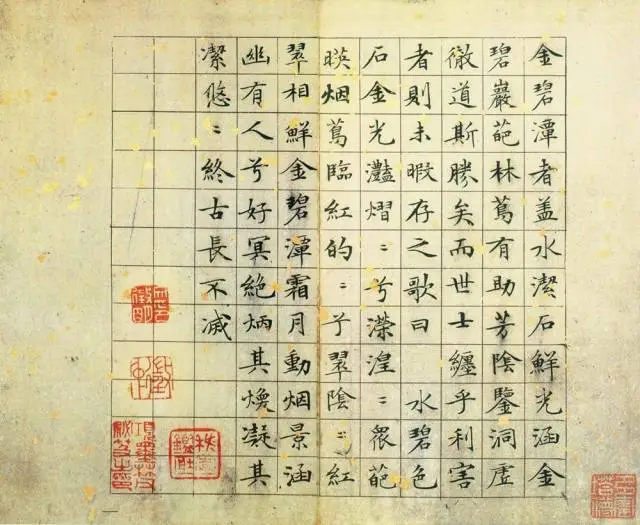 金碧潭者盖水潔石鮮光涵金
碧巖葩林蔦有助芳陰鑒洞虛
徹道斯勝矣而世士纏乎利害
者則未暇存之歌曰 水碧色
石金光灩熠〻兮濚湟〻眾葩
暎烟蔦臨紅的〻兮翠陰〻紅
翠相鮮金碧潭霜月動烟景涵
幽有人兮好冥絕炳其煥凝其
潔悠〻終古長不滅